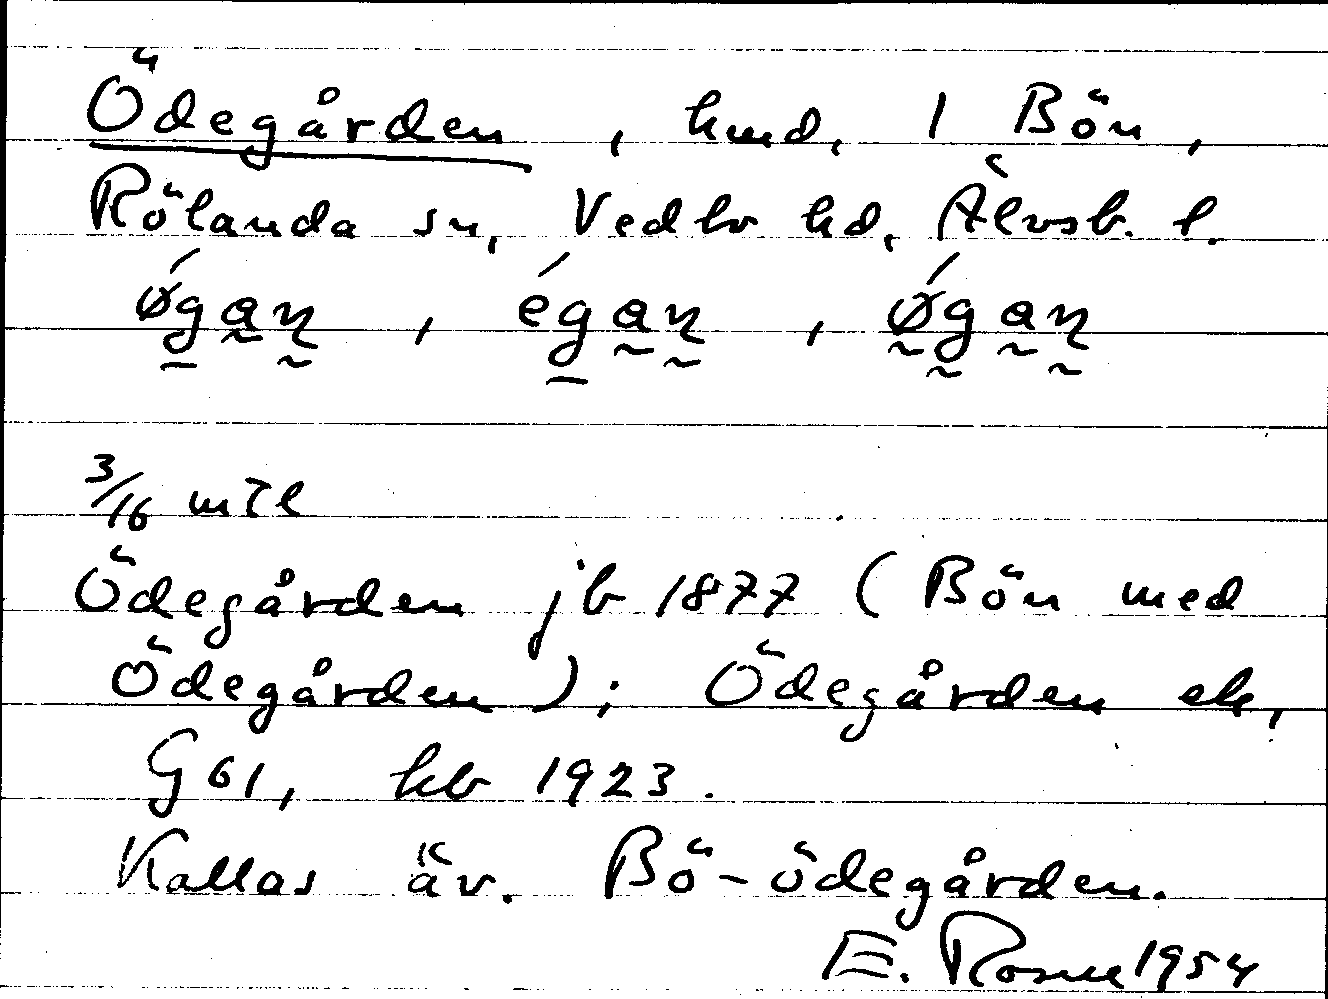 Ödegården, hmd, 1 Bön,
Rölanda sn, Vedbo hd, Älvsb. l.
ǿgan, égan, ǿgan
3/16 mtl
Ödegården jb 1877 (Bön med
Ödegården); Ödegården ek,
G61, kb 1923.
Kallas äv. Bö-ödegården.
E. Rosne 1954